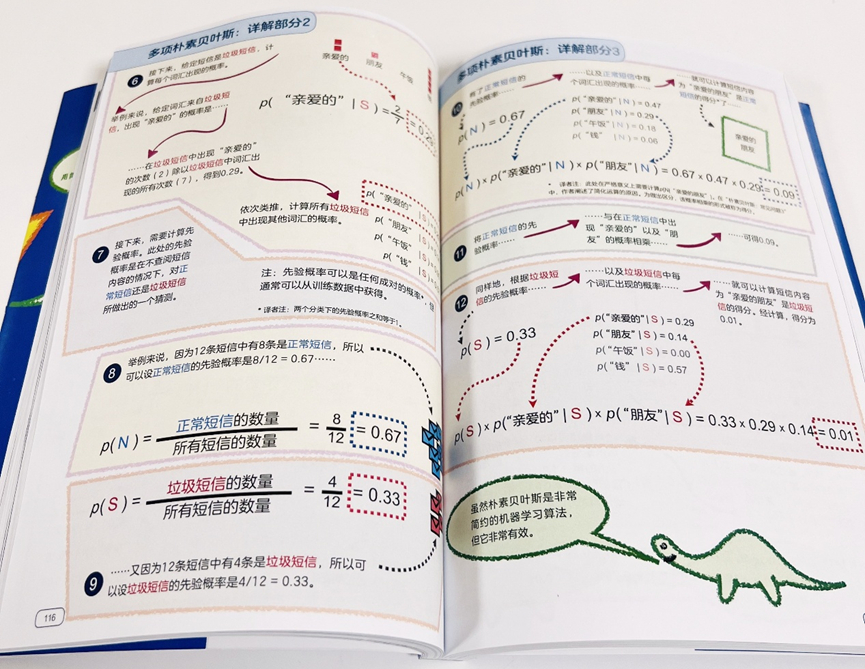 多项朴素贝叶斯：详解部分2
6
接下来，给定短信是垃圾短信，计
算每个词汇出现的概率。
亲爱的
朋友
午饭
举例来说，给定词汇来自垃圾短
信，出现“亲爱的”的概率是……
p( “亲爱的” | S ) = 2/7 = 0.29
……在垃圾短信中出现“亲爱的”
的次数（2）除以垃圾短信中词汇出
现的所有次数（7），得到0.29。
依次类推，计算所有垃圾短信
中出现其他词汇的概率。
p( “亲爱的”
p( “朋友”
p( “午饭”
p( “钱” | S
7
接下来，需要计算先
验概率。此处的先验
概率是在不查阅短信
内容的情况下，对正
常短信还是垃圾短信
所做出的一个猜测。
注：先验概率可以是任何成对的概率*，但
通常可以从训练数据中获得。
* 译者注：两个分类下的先验概率之和等于1。
8
举例来说，因为12条短信中有8条是正常短信，所以
可以设正常短信的先验概率是8/12 = 0.67……
p( N ) = 正常短信的数量/所有短信的数量 = 8/12 = 0.67
p( S ) = 垃圾短信的数量/所有短信的数量 = 4/12 = 0.33
9
……又因为12条短信中有4条是垃圾短信，所以可
以设垃圾短信的先验概率是4/12 = 0.33。
116
多项朴素贝叶斯：详解部分3
10
有了正常短信的
先验概率……
……以及正常短信中每
个词汇出现的概率……
……就可以计算短信内容
为“亲爱的朋友”是正常
短信的得分*了……
p( N ) = 0.67
p( “亲爱的” | N ) = 0.47
p( “朋友” | N ) = 0.29
p( “午饭” | N ) = 0.18
p( “钱” | N ) = 0.06
亲爱的
朋友
p( N ) × p( “亲爱的” | N ) × p( “朋友” | N ) = 0.67 × 0.47 × 0.29 = 0.09
11
将正常短信的先
验概率……
……与在正常短信中出
现“亲爱的”以及“朋
友”的概率相乘……
……可得0.09。
12
同样地，根据垃圾短
信的先验概率……
……以及垃圾短信中每
个词汇出现的概率……
……就可以计算短信内容
为“亲爱的朋友”是垃圾短
信的得分。经计算，得分为
0.01。
p( S ) = 0.33
p( “亲爱的” | S ) = 0.29
p( “朋友” | S ) = 0.14
p( “午饭” | S ) = 0.00
p( “钱” | S ) = 0.57
p( S ) × p( “亲爱的” | S ) × p( “朋友” | S ) = 0.33 × 0.29 × 0.14 = 0.01
虽然朴素贝叶斯是非常
简约的机器学习算法，
但它非常有效。